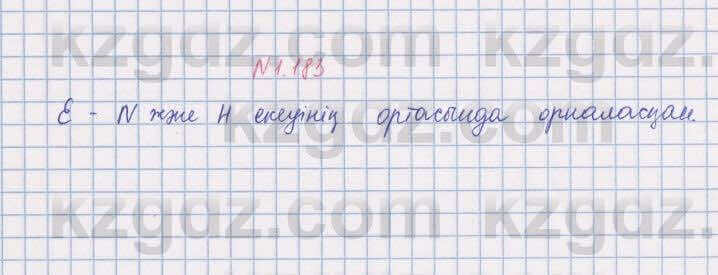 kzgdz.com kzgdz.com
N1.183
Е - N жже Н екеуінің ортасында орналасқан.
kzgdz.com kzgdz.com
kzgdz.com kzgdz.com